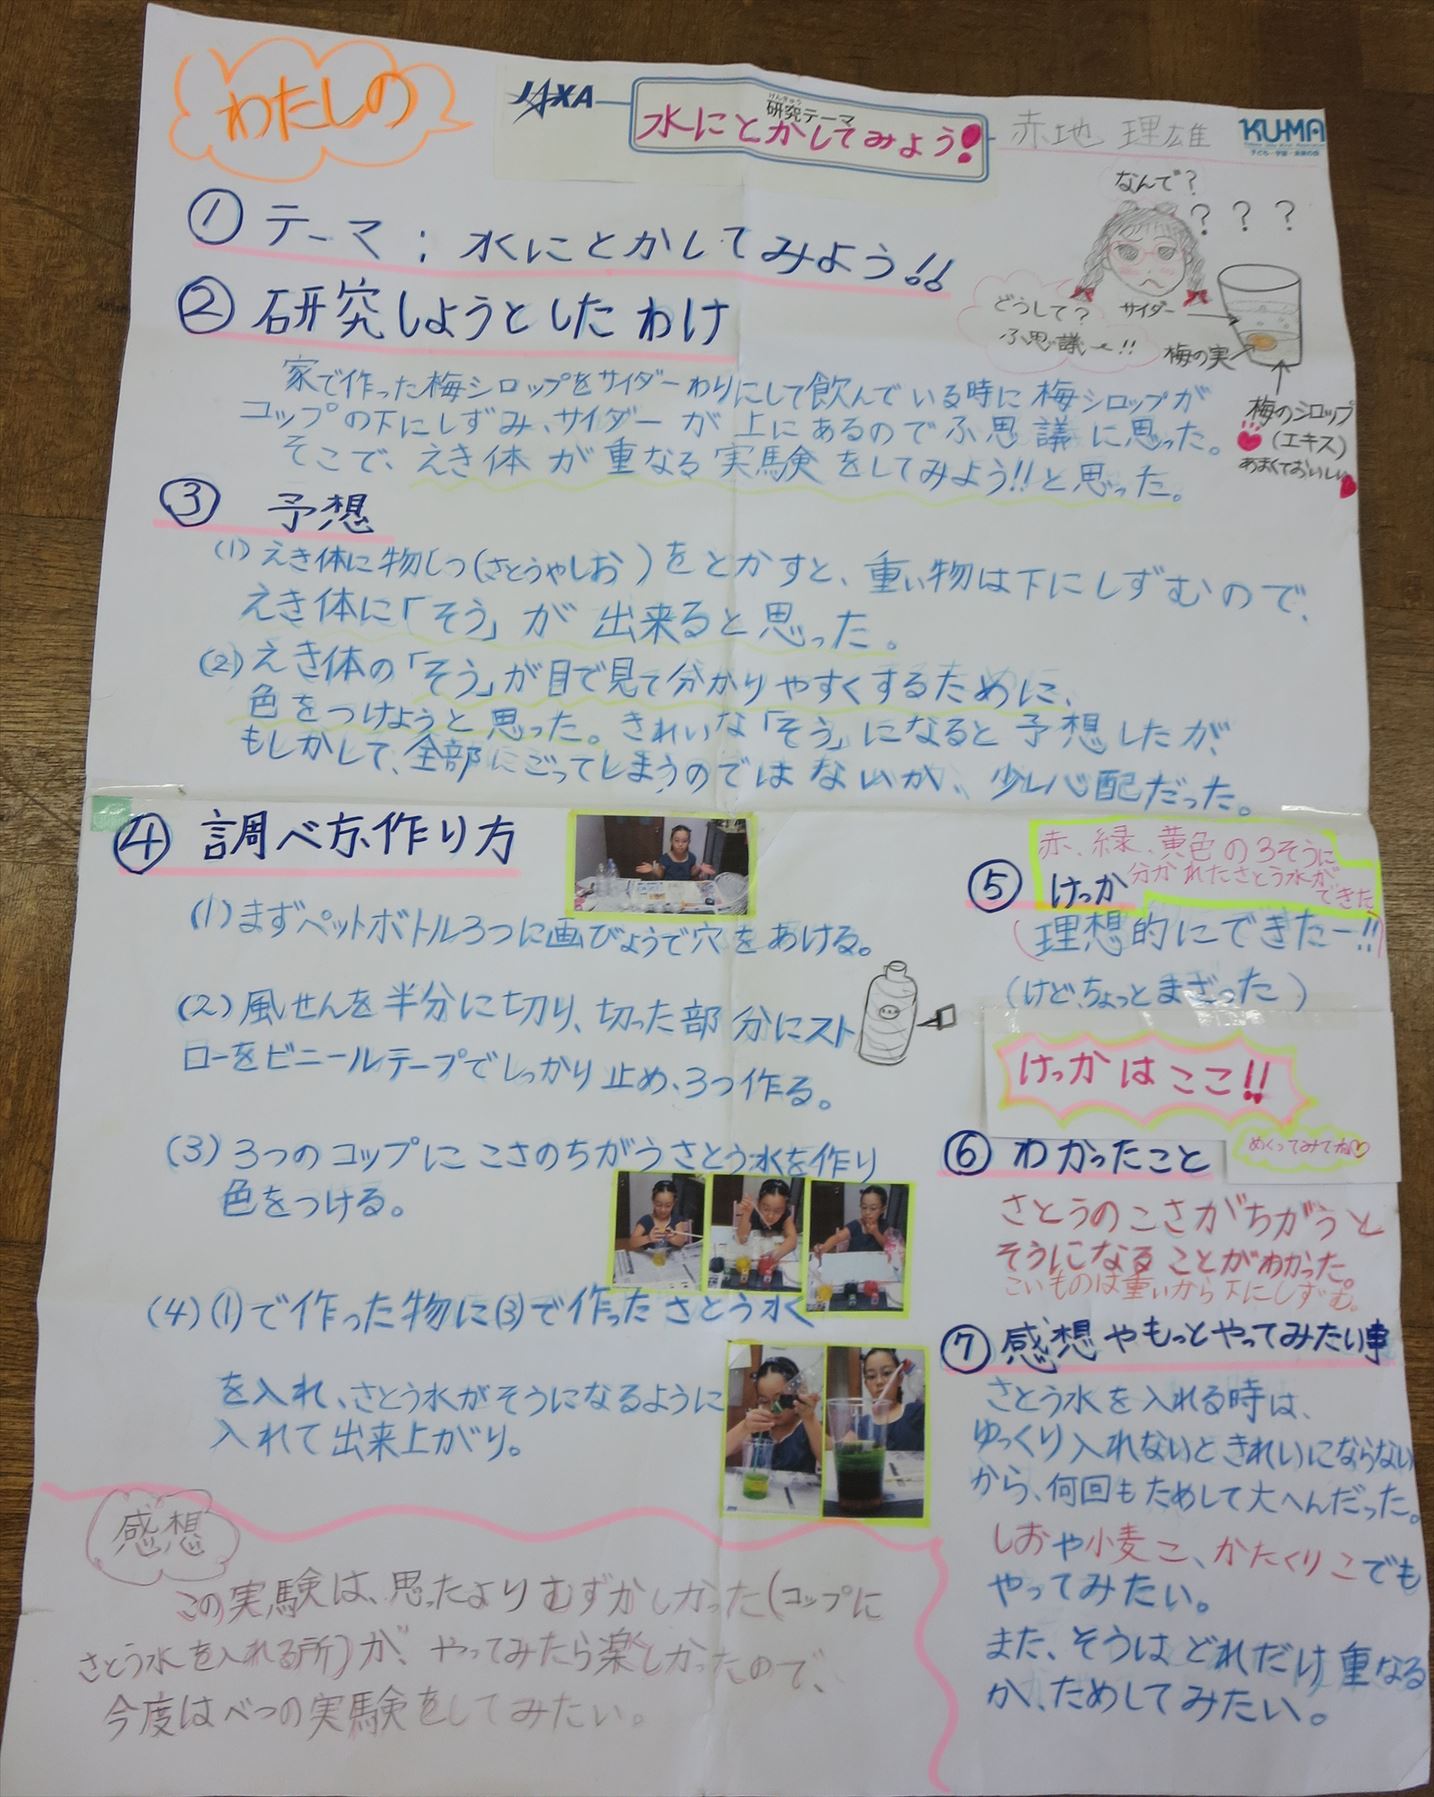 わたしの
JAXA
けんきゅう
研究テーマ
水にとかしてみよう!
赤地 理雄
KU-MA
子ども・宇宙・未来の会
なんで?
? ? ?
どうして?
ふ思議ー!!
サイダー
梅の実
梅のシロップ
(エキス)
あまくておいしい
① テーマ;水にとかしてみよう!!
② 研究しようとしたわけ
家で作った梅シロップをサイダーわりにして飲んでいる時に梅シロップが
コップの下にしずみ、サイダーが上にあるのでふ思議に思った。
そこで、えき体が重なる実験をしてみよう!!と思った。
③ 予想
(1) えき体に物しつ(さとうやしお)をとかすと、重い物は下にしずむので、
えき体に「そう」が出来ると思った。
(2) えき体の「そう」が目で見て分かりやすくするために、
色をつけようと思った。きれいな「そう」になると予想したが、
もしかして、全部にごってしまうのではないか、少し心配だった。
④ 調べ方、作り方
(1) まずペットボトル3つに画びょうで穴をあける。
(2) 風せんを半分に切り、切った部分にスト
ローをビニールテープでしっかり止め、3つ作る。
(3) 3つのコップにこさのちがうさとう水を作り
色をつける。
(4) (1)で作った物に(3)で作ったさとう水
を入れ、さとう水がそうになるように
入れて出来上がり。
⑤ けっか
赤、緑、黄色の3そうに
分かれたさとう水が
できた
(理想的にできたー!!)
(けど、ちょっとまざった)
けっかはここ!!
めくってみてね♡
⑥ わかったこと
さとうのこさがちがうと
そうになることがわかった。
こいものは重いから下にしずむ。
⑦ 感想やもっとやってみたい事
さとう水を入れる時は、
ゆっくり入れないときれいにならない
から、何回もためして大へんだった。
しおや小麦こ、かたくりこでも
やってみたい。
また、そうはどれだけ重なる
か、ためしてみたい。
感想
この実験は、思ったよりむずかしかった(コップに
さとう水を入れる所)が、やってみたら楽しかったので、
今度はべつの実験をしてみたい。